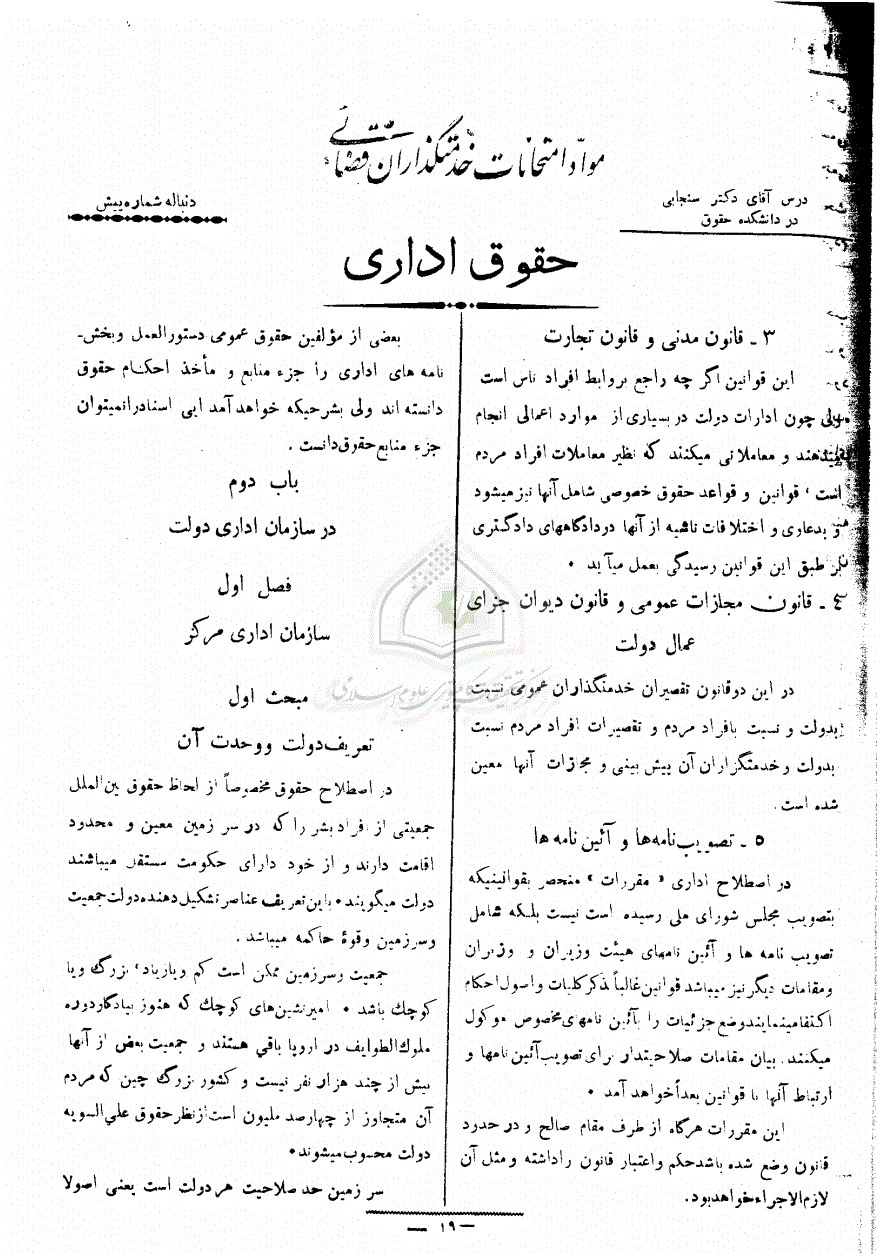 مواد امتحانات خدمتگذاران قضائی
درس آقای دکتر سنجابی
در دانشکده حقوق
دنباله شماره پیش
حقوق اداری
۳ ـ قانون مدنی و قانون تجارت
این قوانین اگر چه راجع بروابط افراد ناس است
ولی چون ادارات دولت در بسیاری از موارد اعمالی انجام
میدهند و معاملاتی میکنند که نظیر معاملات افراد مردم
است ، قوانین و قواعد حقوق خصوصی شامل آنها نیز میشود
و بدعاوی و اختلافات ناشیه از آنها در دادگاههای دادگستری
طبق این قوانین رسیدگی بعمل میآید .
۴ ـ قانون مجازات عمومی و قانون دیوان جزای
عمال دولت
در این دو قانون تقصیران خدمتگذاران عمومی نسبت
بدولت و نسبت بافراد مردم و تقصیرات افراد مردم نسبت
بدولت و خدمتگزاران آن پیش بینی و مجازات آنها معین
شده است .
۵ ـ تصویب نامه ها و آئین نامه ها
در اصطلاح اداری « مقررات » منحصر بقوانینیکه
بتصویب مجلس شورای ملی رسیده است نیست بلکه شامل
تصویب نامه ها و آئین نامهای هیئت وزیران و وزیران
و مقامات دیگر نیز میباشد قوانین غالباً بذکر کلیات و اصول احکام
اکتفا مینمایند وضع جزئیات را بآئین نامهای مخصوص موکول
میکنند . بیان مقامات صلاحیتدار برای تصویب آئین نامها و
ارتباط آنها با قوانین بعداً خواهد آمد .
این مقررات هرگاه از طرف مقام صالح و در حدود
قانون وضع شده باشد حکم و اعتبار قانون را داشته و مثل آن
لازم الاجراء خواهد بود .
بعضی از مؤلفین حقوق عمومی دستورالعمل و بخش‌ـ
نامه های اداری را جزء منابع و مأخذ احکام حقوق
دانسته اند ولی بشرحیکه خواهد آمد ایی اسناد را نمیتوان
جزء منابع حقوق دانست .
باب دوم
در سازمان اداری دولت
فصل اول
سازمان اداری مرکز
مبحث اول
تعریف دولت و وحدت آن
در اصطلاح حقوق مخصوصاً از لحاظ حقوق بین‌الملل
جمعیتی از افراد بشر را که در سر زمین معین و محدود
اقامت دارند و از خود دارای حکومت مستقل میباشند
دولت میگویند . با این تعریف عناصر تشکیل دهنده دولت جمعیت
و سرزمین و قوهٔ حاکمه میباشد .
جمعیت و سرزمین ممکن است کم و یا زیاد ، بزرگ و یا
کوچك باشد . امیر نشین‌های کوچك که هنوز بیادگار دوره
ملوك الطوایف در اروپا باقی هستند و جمعیت بعض از آنها
بیش از چند هزار نفر نیست و کشور بزرگ چین که مردم
آن متجاوز از چهارصد ملیون است از نظر حقوق علی السویه
دولت محسوب میشوند .
سر زمین حد صلاحیت هر دولت است یعنی اصولا
ـ ۱۹ ـ